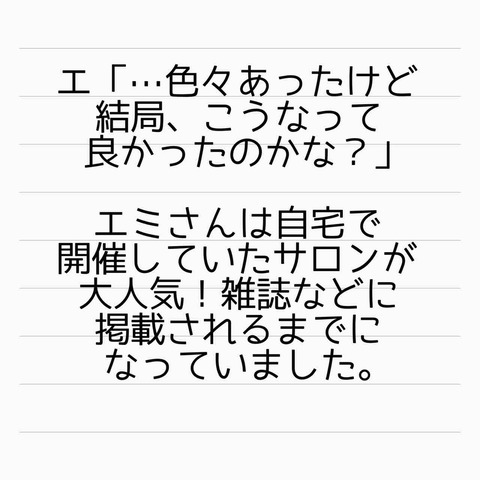 エ「…色々あったけど
結局、こうなって
良かったのかな？」
エミさんは自宅で
開催していたサロンが
大人気！雑誌などに
掲載されるまでに
なっていました。